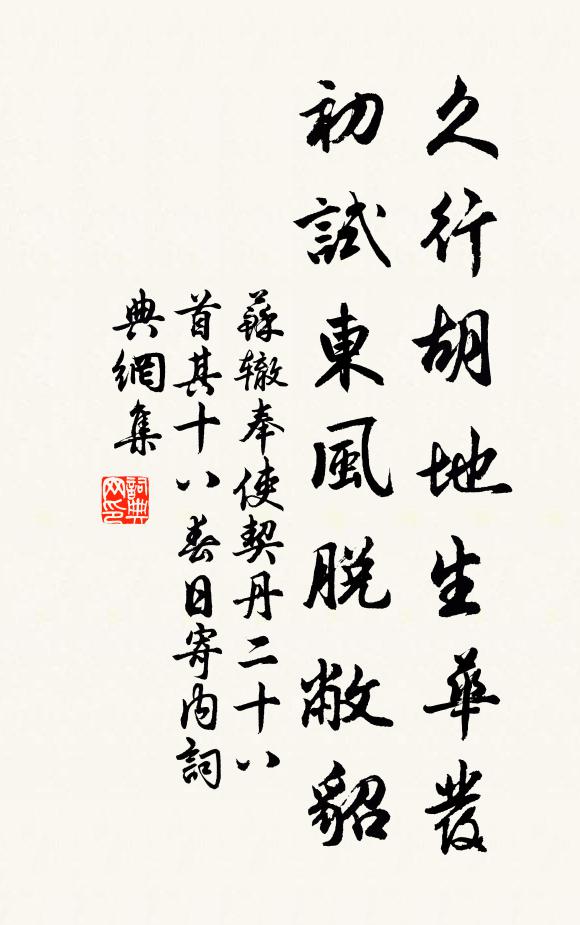 久行胡地生華發
初試東風脫敝貂
蘇轍奉使契丹二十八
首其十八春日寄內詞
典網集
詞典
网印